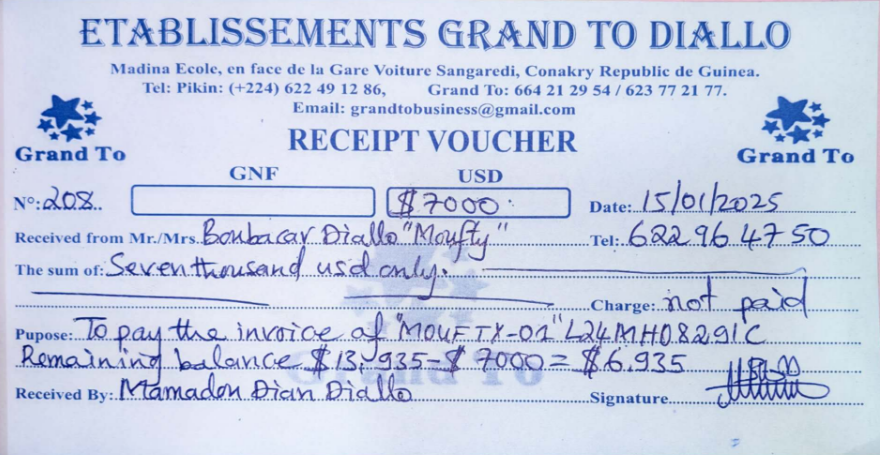 ETABLISSEMENTS GRAND TO DIALLO
Madina Ecole, en face de la Gare Voiture Sangaredi, Conakry Republic de Guinea.
Tel: Pikin: (+224) 622 49 12 86, Grand To: 664 21 29 54 / 623 77 21 77.
Email: grandtobusiness@gmail.com
Grand To RECEIPT VOUCHER Grand To
GNF USD
N°: 208 $ 7000 Date: 15/01/2025
Received from Mr./Mrs. Boubacar Diallo "Moufty" Tel: 622 96 47 50
The sum of: Seven thousand usd only.
Charge: not paid
Pupose: To pay the invoice of "MOUFTX-01" L24MH08291C
Remaining balance $13,935-$ 7000 = $6.935
Received By: Mamadou Dian Diallo Signature